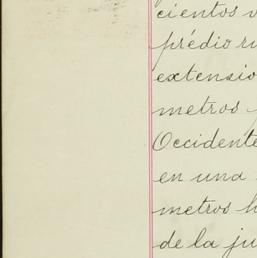 cientos v
prédio ru
extensio
metros
Occidente
en una
metros h
de la ju